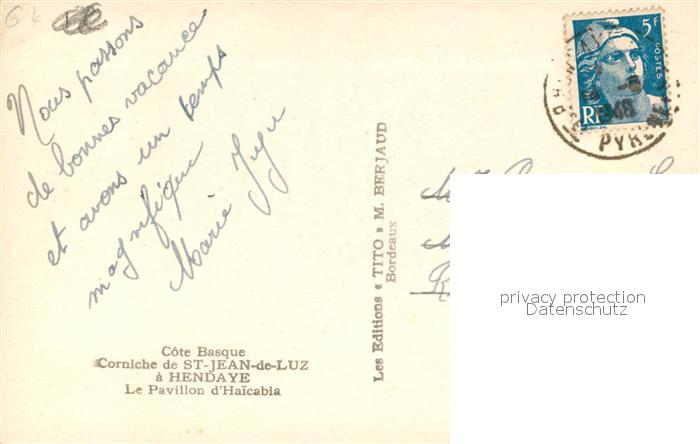 Nous passons
de bonnes vacance
et avons un temps
magnifique
Marie
Côte Basque
Corniche de ST-JEAN-de-LUZ
à HENDAYE
Le Pavillon d'Haïcabia
Les Editions « TITO » M. BERJAUD
Bordeaux
5F
POSTES
RF
PYRENEES
privacy protection
Datenschutz